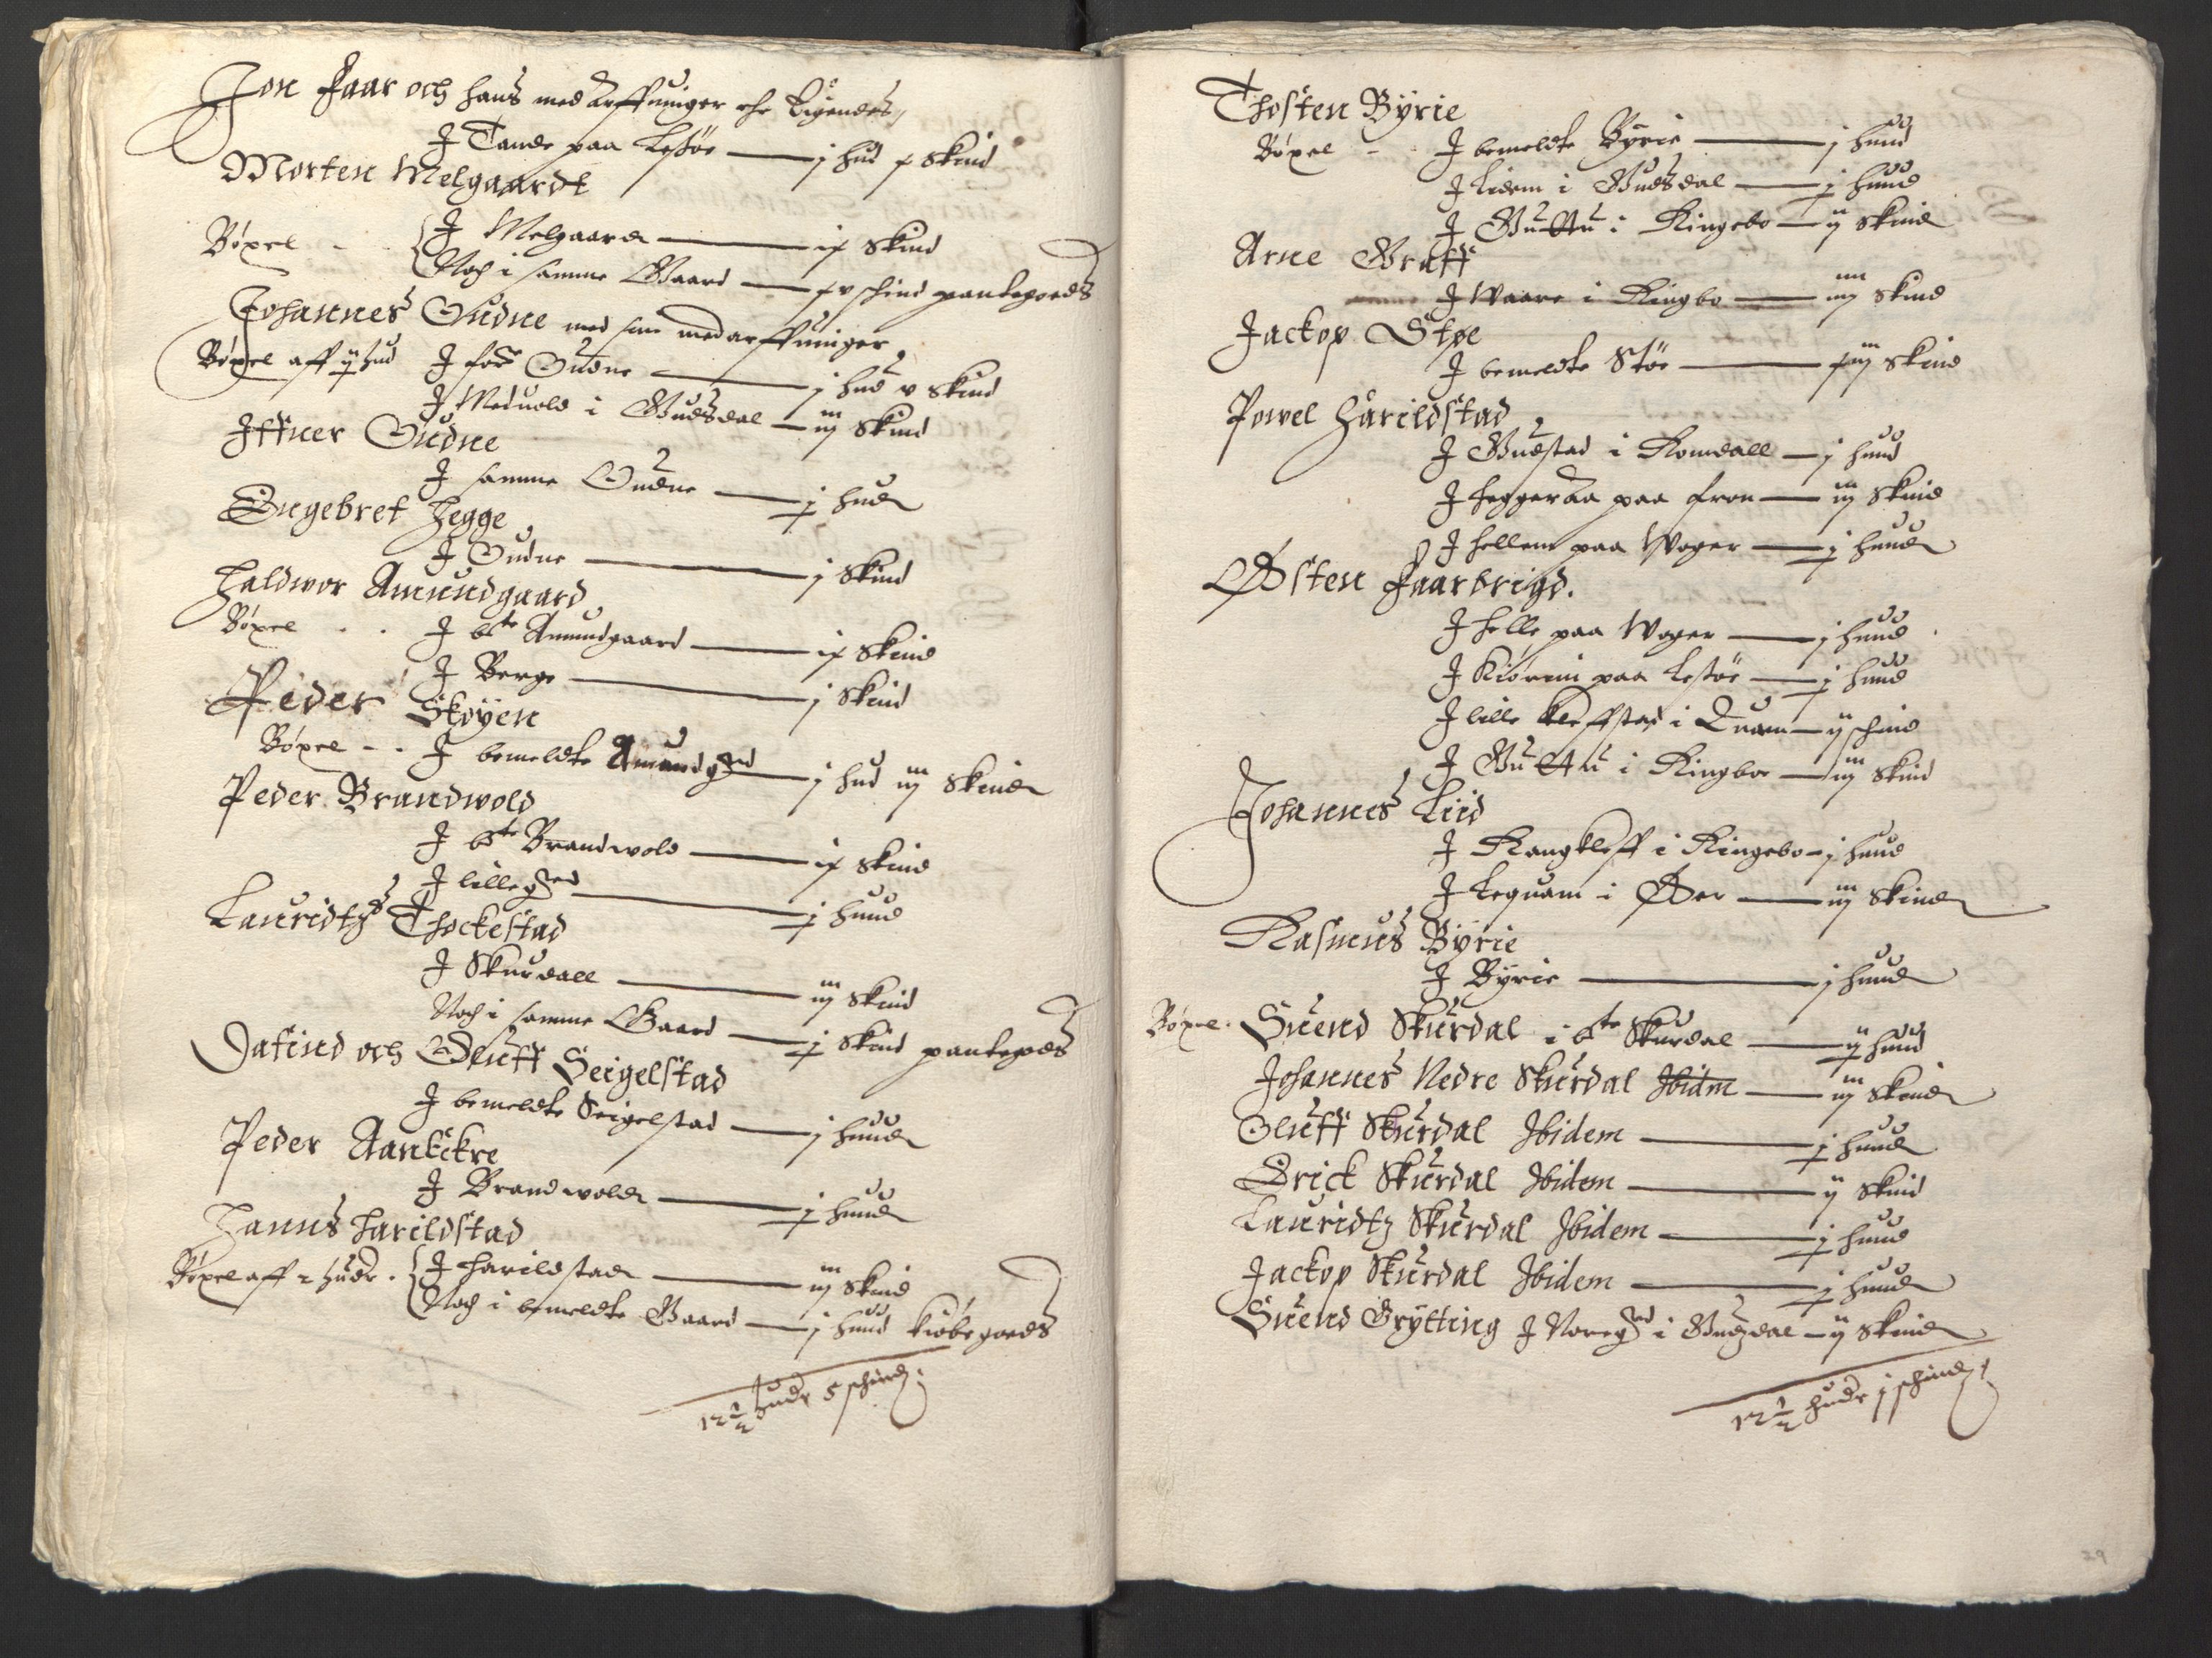 Jon Faar och hans med arffuinger ehr Eigendes,
J Tande paa Lessøe — j hud x Skind
Morten Melgaardt
Bøxel - - J Melgaard — ix Skind
Noch i samme Gaard — xv schind panthegoeds
Johannes Oudne med sine medarffuinger
Bøxel aff ij hud J for: Oudne — j hud v Skind
J Meduold i Gudsdal — iij Skind
Iffuer Oudne
J samme Oudne — j hud
Engebret Hegge
J Oudne — j Skind
Haldwor Amundgaard
Bøxel . . J bte Amundgaard — ix Skind
J Berge — j Skind
Peder Støyen
Bøxel - - J bemeldte Amundgrd — j hud iij Skind
Peder Brandwold
J bte Brandwold — ix Skind
J lillegrd — j huud
Lauridtz Thockestad
J Skurdall — iij Skind
Noch i samme Gaard — j Skind pantegods
Jafind och Oluff Seigelstad
J bemeldte Seigelstad — j huud
Peder Aankekre
J Brandwold — j huud
Hanns Harildstad
Bøxel aff 2 huder . J Harildstad — iij Skind
Noch i bemeldte Gaard — j huud kiøbegoeds
12 1/2 hudr 5 schind;
Thosten Byrie
Bøxel - . J bemeldte Byrie — j huud
J Lidem i Gudsdal — j huud
J Guttu i Ringebo — ij Skind
Arne Graff
J Waare i Ringbo — iiij Skind
Jackop Støe
J bemeldte Støe — xiij Skind
Powel Harildstad
J Gudstad i Romdall — j huud
J Heggeraa paa Fron — iij Skind
J Hellem paa Woger — j huud
Østen Faarbrigd.
J Helle paa Woger — j huud
J Kiørem paa Lessøe — j huud
J lille Kleffstad i Quam — ij schind
J Guttu i Ringboe — iij Skind
Johannes Liid
J Rangkleff i Ringebo — j huud
J Lequam i Øer — iij Skind
Rasmus Byrie
J Byrie — j huud
Bøxel. Suend Skurdal i bte Skurdal — ij huud
Johannes Nedre Skurdal Ibidm — iij Skind
Oluff Skurdal Ibidem — j huud
Erick Skurdal Ibidem — ij Skind
Lauridtz Skurdal Ibidem — j huud
Jackop Skurdal Ibidem — j huud
Suend Grytting J Noregrd i Gudzdal — ij Skind
12 1/2 hudr j schind;
29